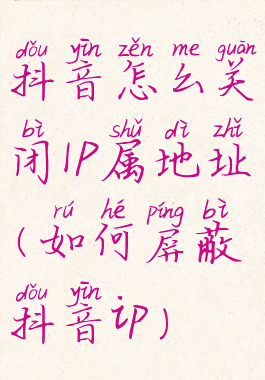 dǒu yīn zěn me guān
抖音怎么关
bì shǔ dì zhǐ
闭IP属地址
rú hé píng bì
(如何屏蔽
dǒu yīn
抖音ip)